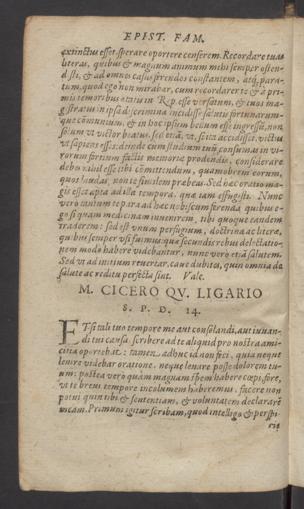 EPIST. FAM.
extinctus esset, sperare oportere censerem. Recordare tuas
literas, quibus & magnum animum mihi semper osten-
disti, & ad omnes casus ferendos constantem, atq; para-
tum, quod ego non mirabar, cum recordarer te & à pri-
mis temporibus ætatis in Rep. esse versatum, & tuos ma-
gistratus in ipsa discrimina incidisse salutis fortunarum-
que communium, & in hoc ipsum bellum esse ingressum, non
solum vt victor beatus, sed etiā, vt, si ita accidisset, victus
vt sapiens esses: deinde cum studium tuū consumas in vi-
rorum fortium factis memoriæ prodendis, considerare
debes nihil esse tibi committendum, quamobrem eorum,
quos laudas, non te similem præbeas. Sed hæc oratio ma-
gis esset apta ad illa tempora, quæ iam effugisti. Nunc
vero tantum te para ad hæc nobiscum ferenda, quibus e-
go si quam medicinam inuenirem, tibi quoque eandem
traderem: sed est vnum perfugium, doctrina ac literæ,
quibus semper vsi sumus: quæ secundis rebus delectatio-
nem modo habere videbantur, nunc vero etiā salutem.
Sed vt ad initium reuertar, caue dubites, quin omnia de
salute ac reditu perfecta sint. Vale.
M. CICERO QV. LIGARIO
S. P. D. 14.
ETsi tali tuo tempore me aut consolandi, aut iuuan-
di tui causa scribere ad te aliquid pro nostra ami-
citia oportebat: tamen adhuc id non feci, quia neque
lenire videbar oratione, neque leuare posse dolorem tu-
um: postea vero quàm magnam spem habere cœpi, fore,
vt te breui tempore incolumem haberemus: facere non
potui quin tibi & sententiam, & voluntatem declararē
meam. Primum igitur scribam, quod intelligo & perspi-